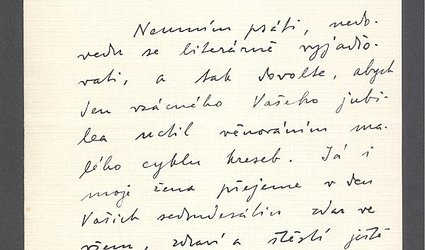 Neumím psáti, nedo-
vedu se literárně vyjadřo-
vati, a tak dovolte, abych
den vzácného Vašeho jubi-
lea uctil věnováním ma-
lého cyklu kreseb. Já i
moje žena přejeme v den
Vašich sedmdesátin zdar ve
všem, zdraví a štěstí ještě